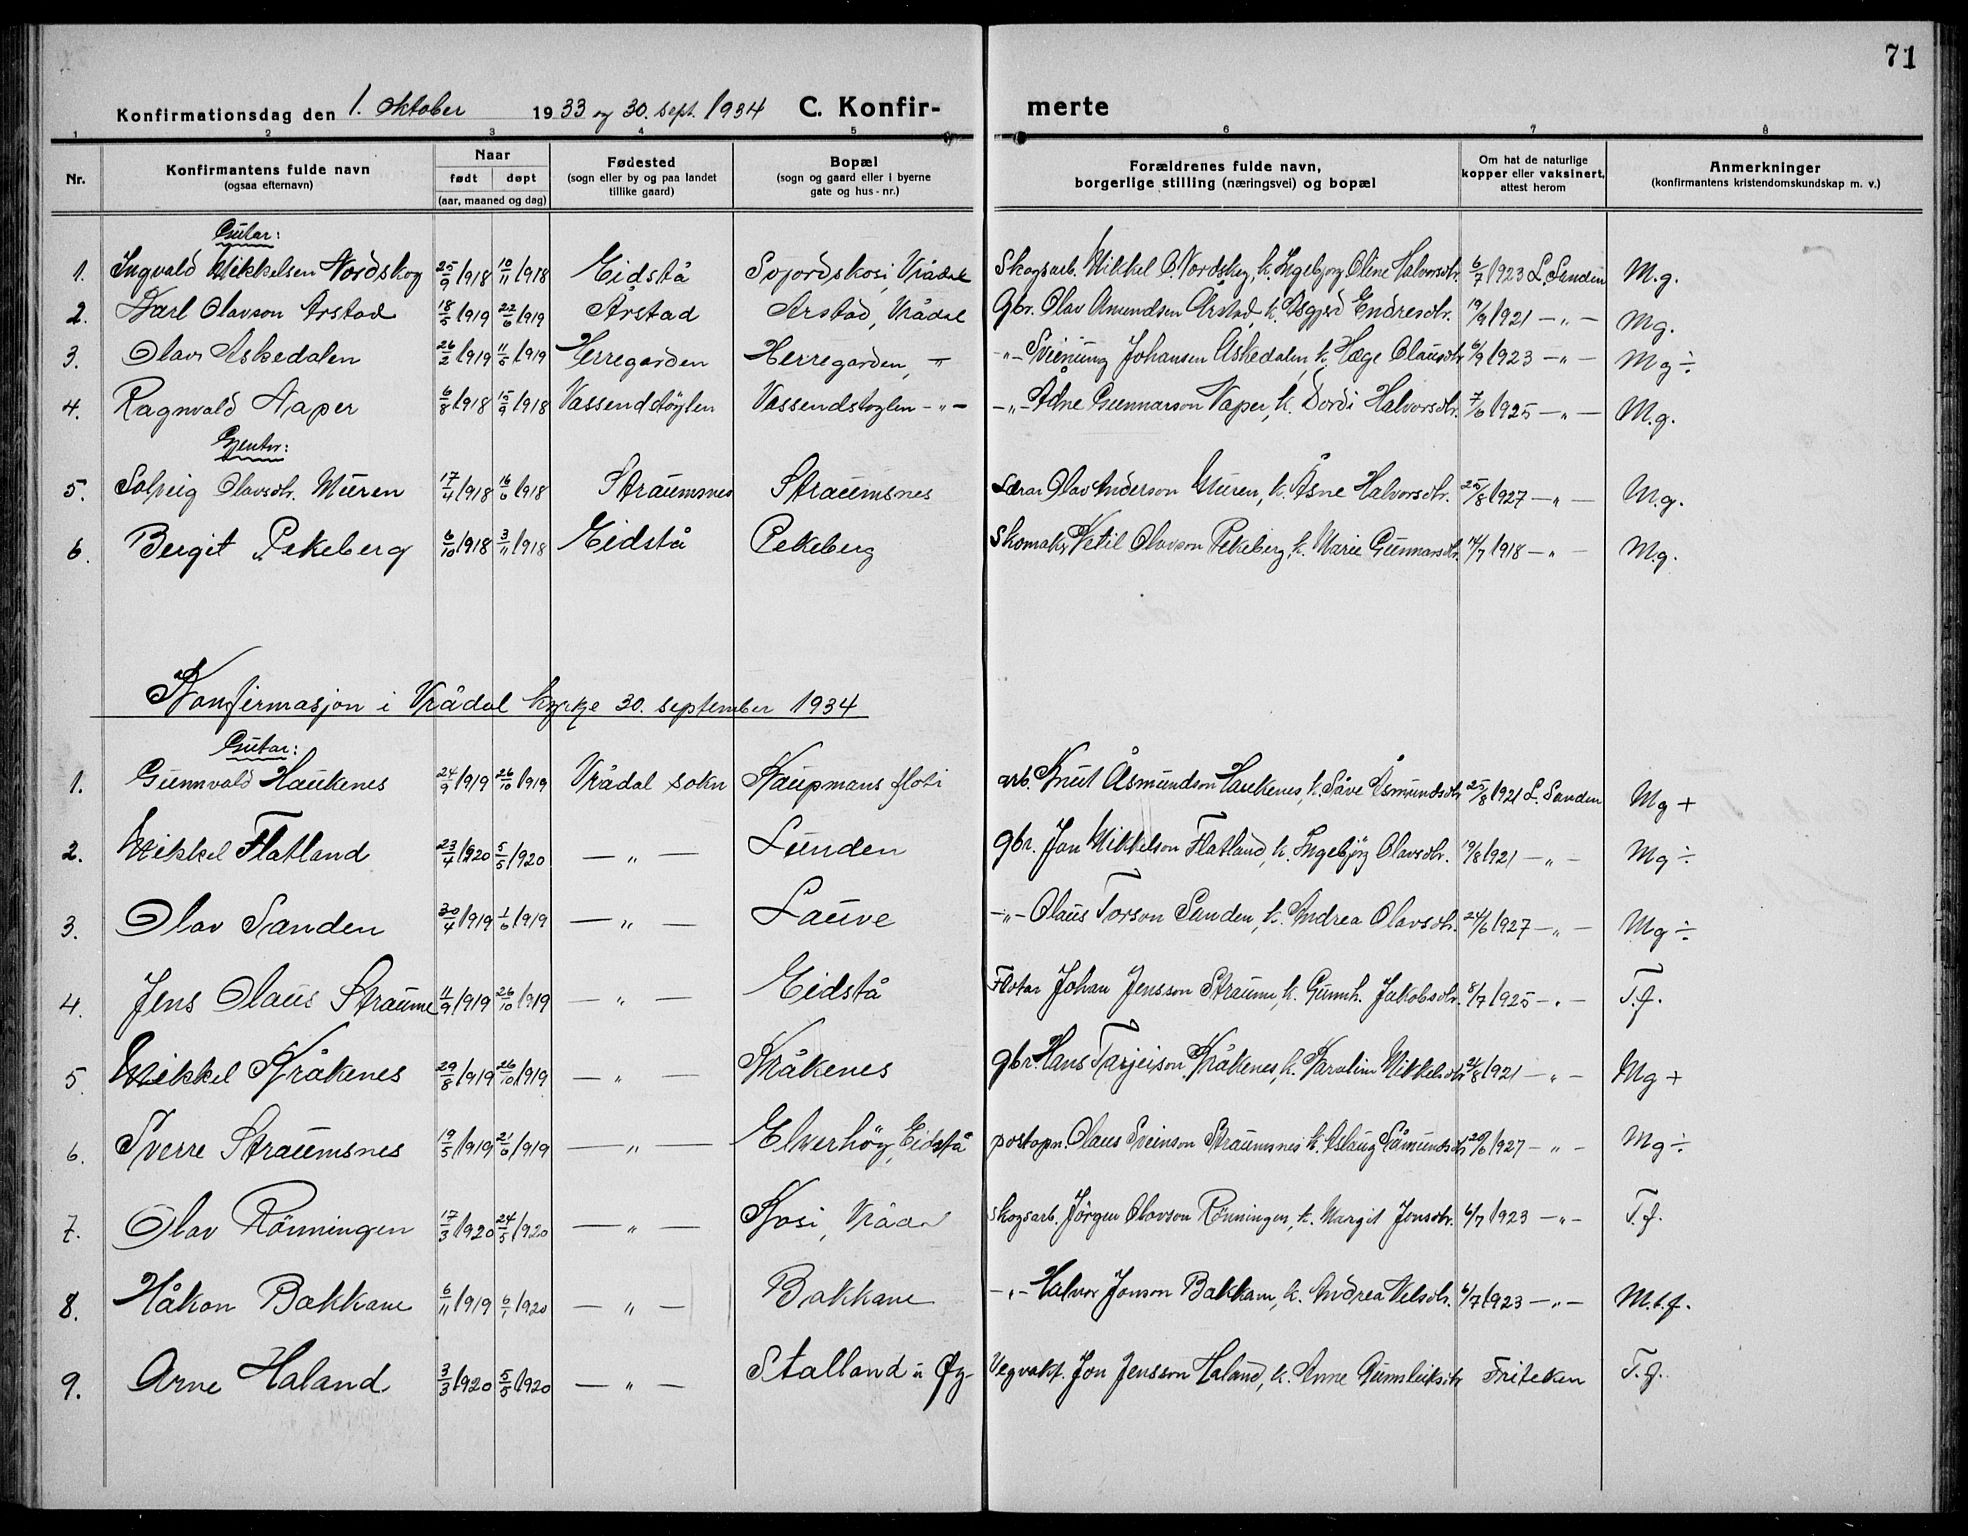 71
Konfirmationsdag den 1. oktober 1933 og 30. sept. 1934 C. Konfir- merte
1 2 3 4 5 6 7 8
Nr.
Konfirmantens fulde navn
(ogsaa efternavn)
Naar
født døpt
(aar, maaned og dag)
Fødested
(sogn eller by og paa landet
tillike gaard)
Bopæl
(sogn og gaard eller i byerne
gate og hus-nr.)
Forældrenes fulde navn,
borgerlige stilling (næringsvei) og bopæl
Om hat de naturlige
kopper eller vaksinert,
attest herom
Anmerkninger
(konfirmantens kristendomskundskap m. v.)
Gutar:
1. Ingvald Mikkelsen Nordskog 25/9 1918 10/11 1918 Eidstå Vrådal Skogsarb. Mikkel O. Nordskog, k. Ingebjorg Oline Halvorsdtr. 6/7 1923 L. Sanden M.g.
2. Karl Olavson Årstad 18/5 1919 22/6 1919 Årstad Årstad, Vrådal Gbr. Olav Amundsen Årstad, k. Asgjerd Endresdtr. 19/9 1921 -"- Mg.
3. Olav Askedalen 26/2 1919 11/5 1919 Herregarden Herregarden, -"- -"- Sveinung Johansen Askedalen, k. Hæge Olausdtr. 6/9 1923 -"- Mg÷
4. Ragnvald Naper 6/8 1918 15/9 1918 Vassendstöylen Vassendstoylen -"- -"- Ådne Gunnarson Naper, k. Dordi Halvorsdtr. 7/6 1925 -"- M.g.
Gjentor:
5. Solveig Olavsdtr. Muren 17/4 1918 16/6 1918 Straumsnes Straumsnes Lærar Olav Anderson Muren, k. Åsne Halvorsdtr. 25/8 1927 -"- M.g.
6. Bergit Pekeberg 6/10 1918 3/11 1918 Eidstå Pekeberg Skomakr. Ketil Olavson Pekeberg, k. Marie Gunnarsdtr. 14/7 1918 -"- M.g.
Konfirmasjon i Vrådal kyrkje 30. september 1934
Gutar:
1. Gunnvald Haukenes 24/9 1919 26/10 1919 Vrådal sokn Kaupmans floti arb. Knut Åsmundson Haukenes, k. Såve Åsmundsdtr. 25/8 1921 L. Sanden Mg +
2. Mikkel Flatland 23/4 1920 5/5 1920 -"- Lunden gbr. Jon Mikkelson Flatland, k. Ingebjörg Olavsdtr. 19/8 1921 -"- Mg ÷
3. Olav Sanden 30/4 1919 1/6 1919 -"- Lauve -"- Olaus Torson Sanden, k. Andrea Olavsdtr. 24/6 1927 -"- Mg ÷
4. Jens Olaus Straume 11/9 1919 26/10 1919 -"- Eidstå Flotar Johan Jensson Straume, k. Gunnh. Jakobsdtr. 8/7 1925 -"- T.f.
5 Mikkel Kråkenes 29/8 1919 26/10 1919 -"- Kråkenes gbr. Hans Tarjeison Kråkenes, k. Karoline Mikkelsdtr. 24/8 1921 -"- Mg +
6. Sverre Straumsnes 19/5 1919 21/6 1919 -"- Elverhöy, Eidstå postopn. Olaus Sveinson Straumsnes k. Aslaug Såmundsdtr. 20/6 1927 -"- Mg ÷
7. Olav Rönningen 17/3 1920 24/5 1920 -"- Kosi, Vrådal skogsarb. Jörgen Olavson Rönningen, k. Margit Jonsdtr. 6/7 1923 -"- T.f.
8. Håkon Bakkane 6/11 1919 6/1 1920 -"- Bakkane -"- Halvor Jonson Bakkane, k. Andrea Nelsdtr. 6/7 1923 -"- M.t.f.
9. Arne Haland 3/3 1920 5/5 1920 -"- Stalland u Øy- Vegvakt. Jon Jensson Haland, k. Anne Gunnleiksdtr. Friteken T.f.